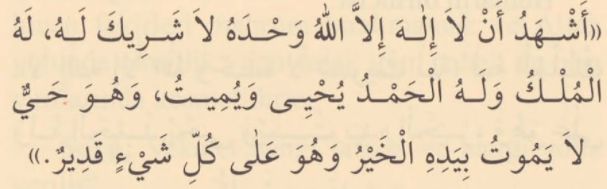 «أَشْهَدُ أَنْ لَا إِلهَ إِلاَّ اللهُ وَحْدَهُ لاَ شَرِيكَ لَهُ، لَهُ
الْمُلْكُ وَلَهُ الْحَمْدُ يُحْيِى وَيُمِيتُ، وَهُوَ حَيٌّ
لاَ يَمُوتُ بِيَدِهِ الْخَيْرُ وَهُوَ عَلٰى كُلِّ شَيْءٍ قَدِيرٌ.»